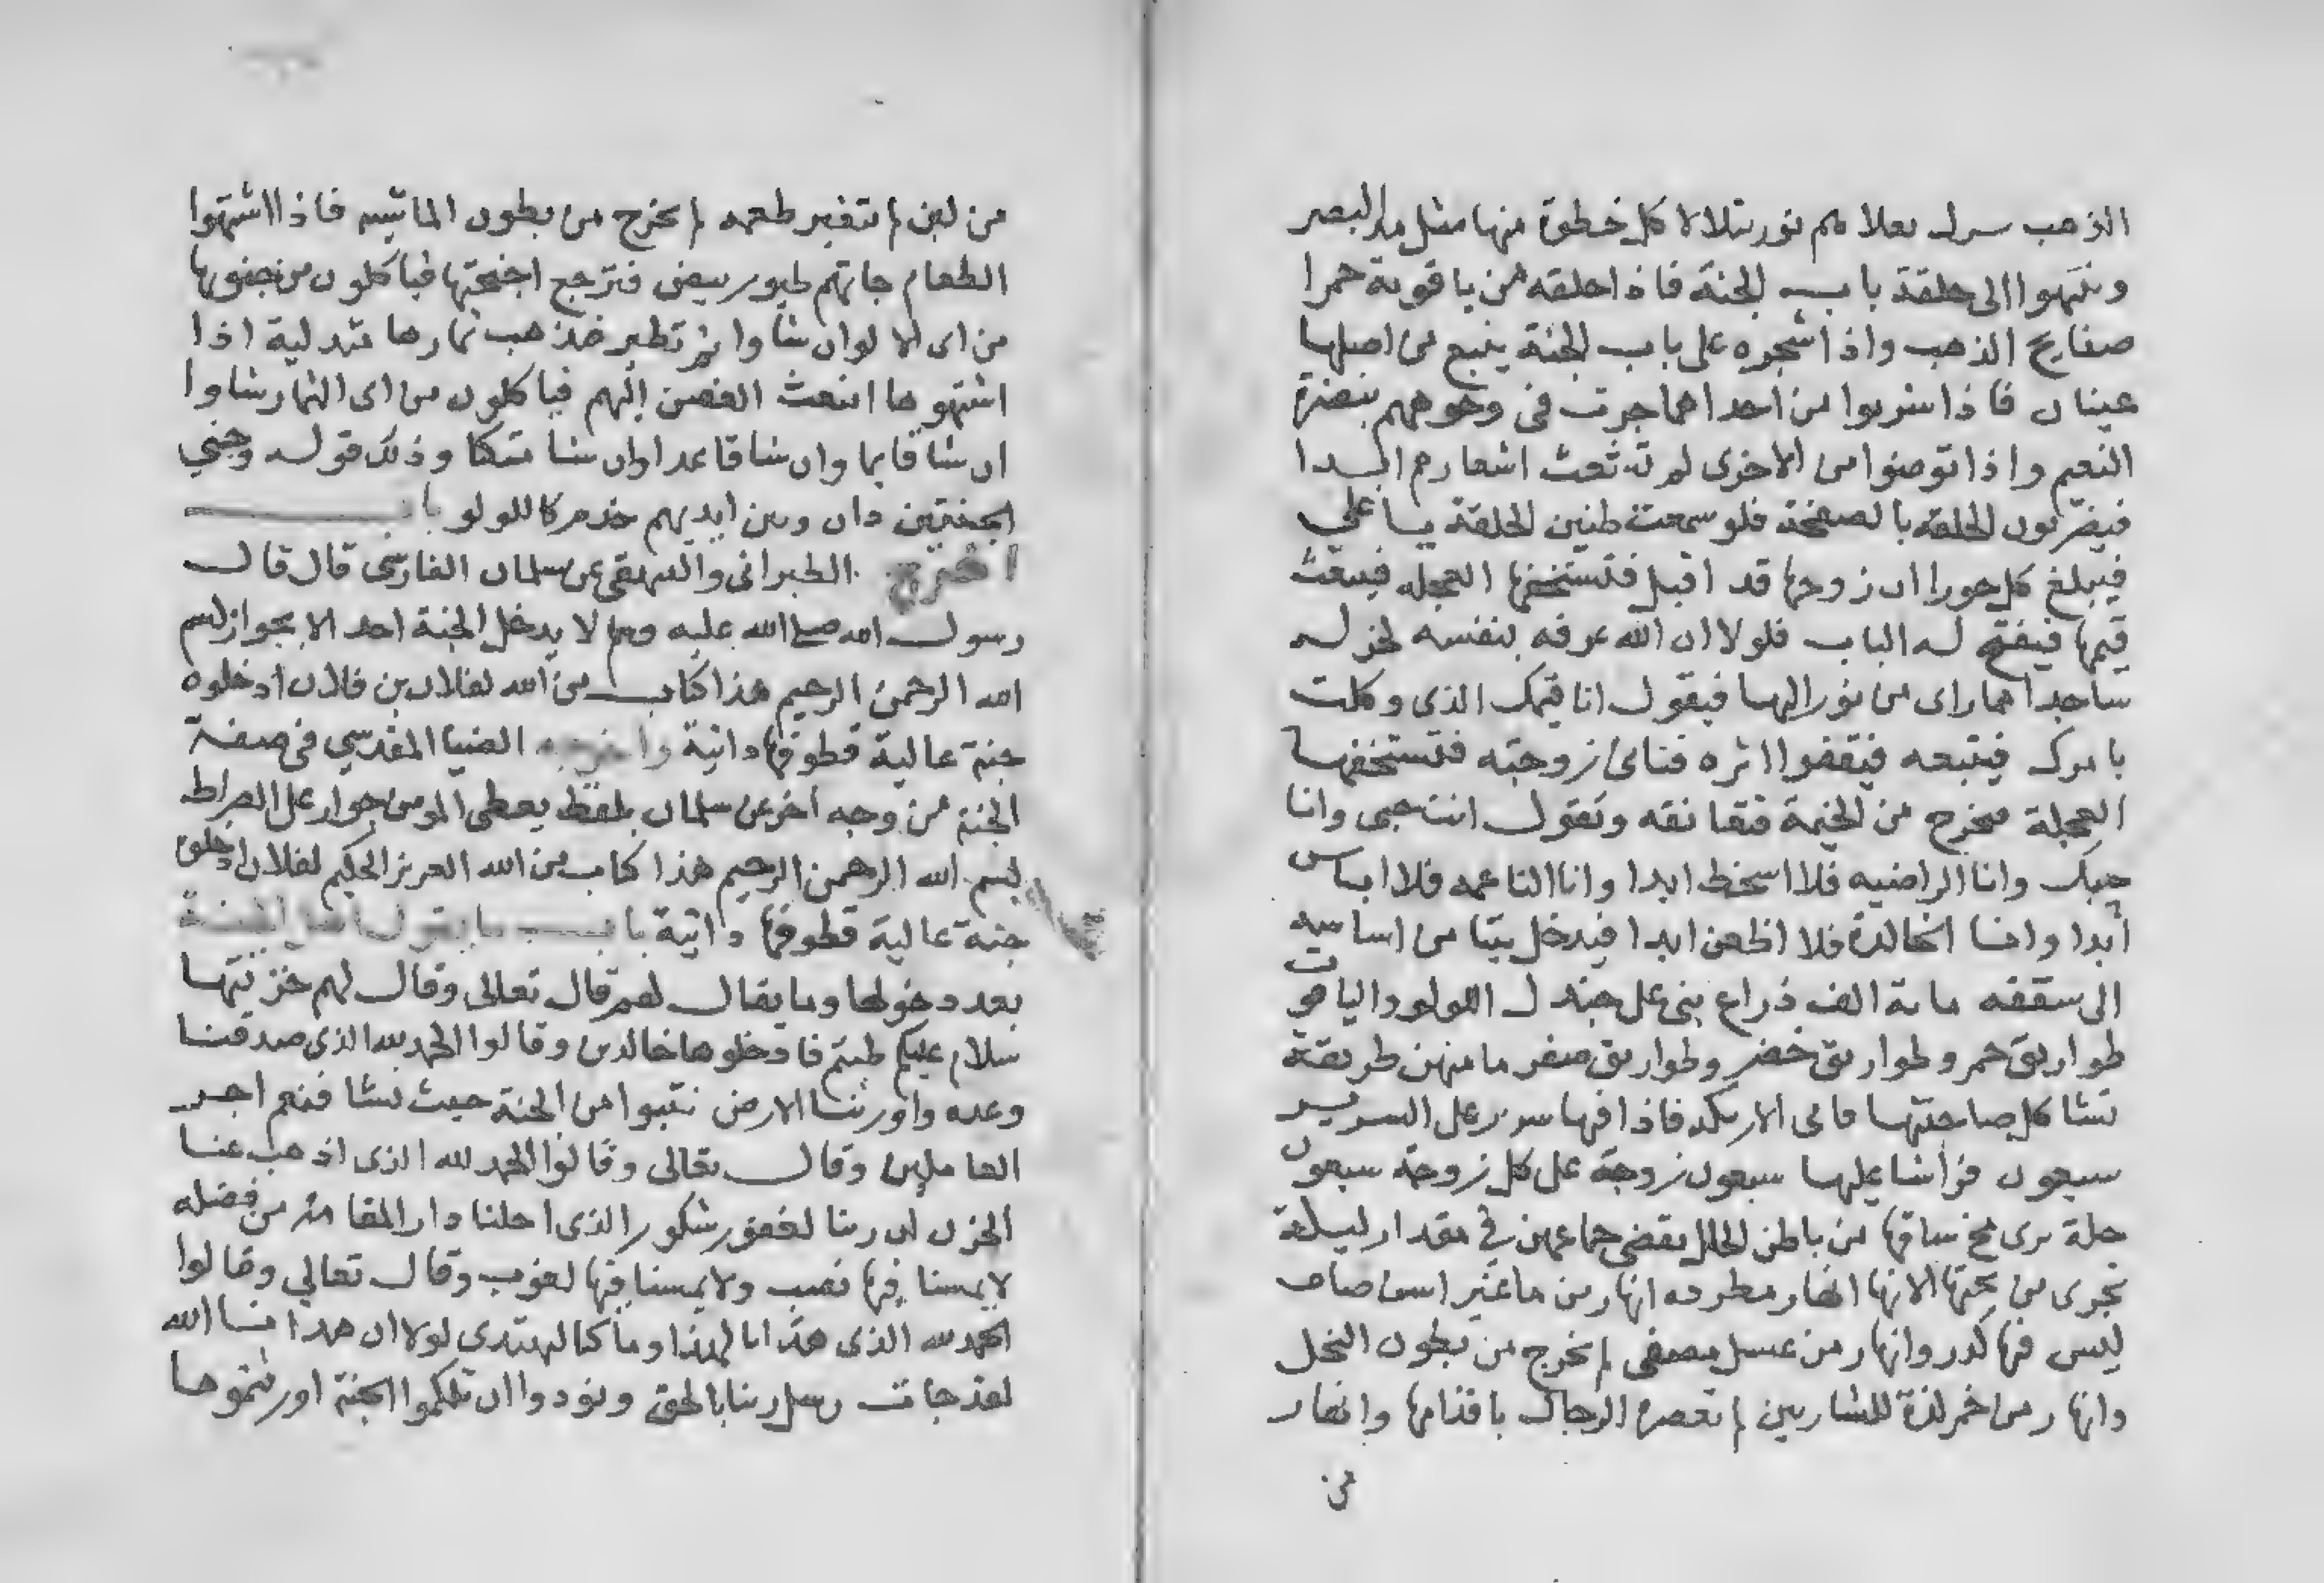 الذهب سرك نعلا بهم نور يتلالا كل خطوة منها مثل مد البصر
وينتهوا الى حلقة باب الجنة فاذا حلقه من ياقوتة حمرا
صفايح الذهب واذا شجره على باب الجنة ينبع من اصلها
عينان فاذا شربوا من احداهما جرت في وجوههم بنضرة
النعيم واذا توضوا من الاخرى لم تشعث اشعارهم ابدا
فيضربون الحلقة بالصفحة فلو سمعت طنين الحلقة يا على
فيبلغ كل حورا ان زوجها قد اقبل فتستخفها العجله فيبعث
قيمها فيفتح له الباب فلولا ان الله عرفه بنفسه لخر له
ساجدا مما راى من نور البها فيقول انا قيمك الذى وكلت
بامرك فيتبعه فيقفوا اثره فتاتى زوجته فتستخفها
العجلة فتخرج من الخيمة فتعانقه وتقول انت حبى وانا
حبك وانا الراضيه فلا اسخط ابدا وانا الناعمه فلا اباس
ابدا وانا الخالدة فلا اظعن ابدا فيدخل بيتا من اساسه
الى سقفه ماية الف ذراع بنى على جندل اللولو والياقوت
طواريق حمر وطواريق خضر وطواريق صفر ما منهن طريقة
تشاكل صاحبتها فاتى الاريكه فاذا فيها سرير على السرير
سبعون فراشا عليها سبعون زوجة على كل زوجة سبعون
حلة يرى مخ ساقها من باطن الحلل يقضى جماعهن في مقدار ليلة
تجرى من تحتها الانهار انهار مطرده انهار من ما غير اسن صاف
ليس فيها كدر وانهار من عسل مصفى لم يخرج من بطون النحل
وانهار من خمر لذة للشاربين لم تعصره الرجال باقدامها وانهار
من
من لبن لم يتغير طعمه لم يخرج من بطون الماشيه فاذا اشتهوا
الطعام جاتهم طيور بيض فترجع اجنحتها فياكلون من جنوبها
من اى الالوان شاوا ثم تطير فتذهب ثمارها متدلية اذا
اشتهوها انبعث الغصن اليهم فياكلون من اى الثمار شاوا
ان شا قايما وان شا قاعدا وان شا متكا وذلك قوله وجنى
الجنتين دان وبين ايديهم خدم كاللولو باب
اخرج الطبرانى والبيهقى عن سلمان الفارسى قال قال
رسول الله صلى الله عليه وسلم لا يدخل الجنة احد الا بجواز بسم
الله الرحمن الرحيم هذا كتاب من الله لفلان بن فلان ادخلوه
جنة عالية قطوفها دانية واخرجه الضيا المقدسى فى صفة
الجنة من وجه اخر عن سلمان بلفظ يعطى المومن جواز على الصراط
بسم الله الرحمن الرحيم هذا كتاب من الله العزيز الحكيم لفلان ادخلوه
جنة عالية قطوفها دانية باب ما يقول اهل الجنة
بعد دخولها وما يقال لهم قال تعالى وقال لهم خزنتها
سلام عليكم طبتم فادخلوها خالدين وقالوا الحمد لله الذى صدقنا
وعده واورثنا الارض نتبوا من الجنة حيث نشا فنعم اجر
العاملين وقال تعالى وقالوا الحمد لله الذى اذهب عنا
الحزن ان ربنا لغفور شكور الذى احلنا دار المقامة من فضله
لا يمسنا فيها نصب ولا يمسنا فيها لغوب وقال تعالى وقالوا
الحمد لله الذى هدانا لهذا وما كنا لنهتدى لولا ان هدانا الله
لقد جات رسل ربنا بالحق ونودوا ان تلكموا الجنة اورثتموها